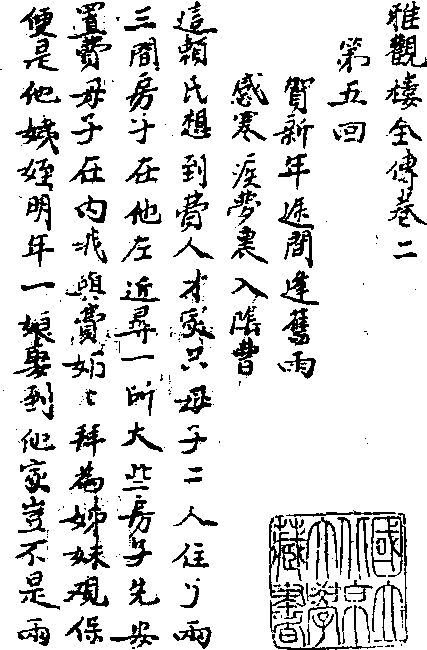 雅觀樓全傳卷二
第五回
賀新年途間逢舊雨
感寒疾夢裏入陰曹
這賴氏想到費人才家只母子二人住了兩
三間房子在他左近尋一所大些房子先安
置費母子在內我與費奶〻拜為姊妹現保
便是他姨姪明年一娘娶到他家豈不是兩
國立北京大學藏書